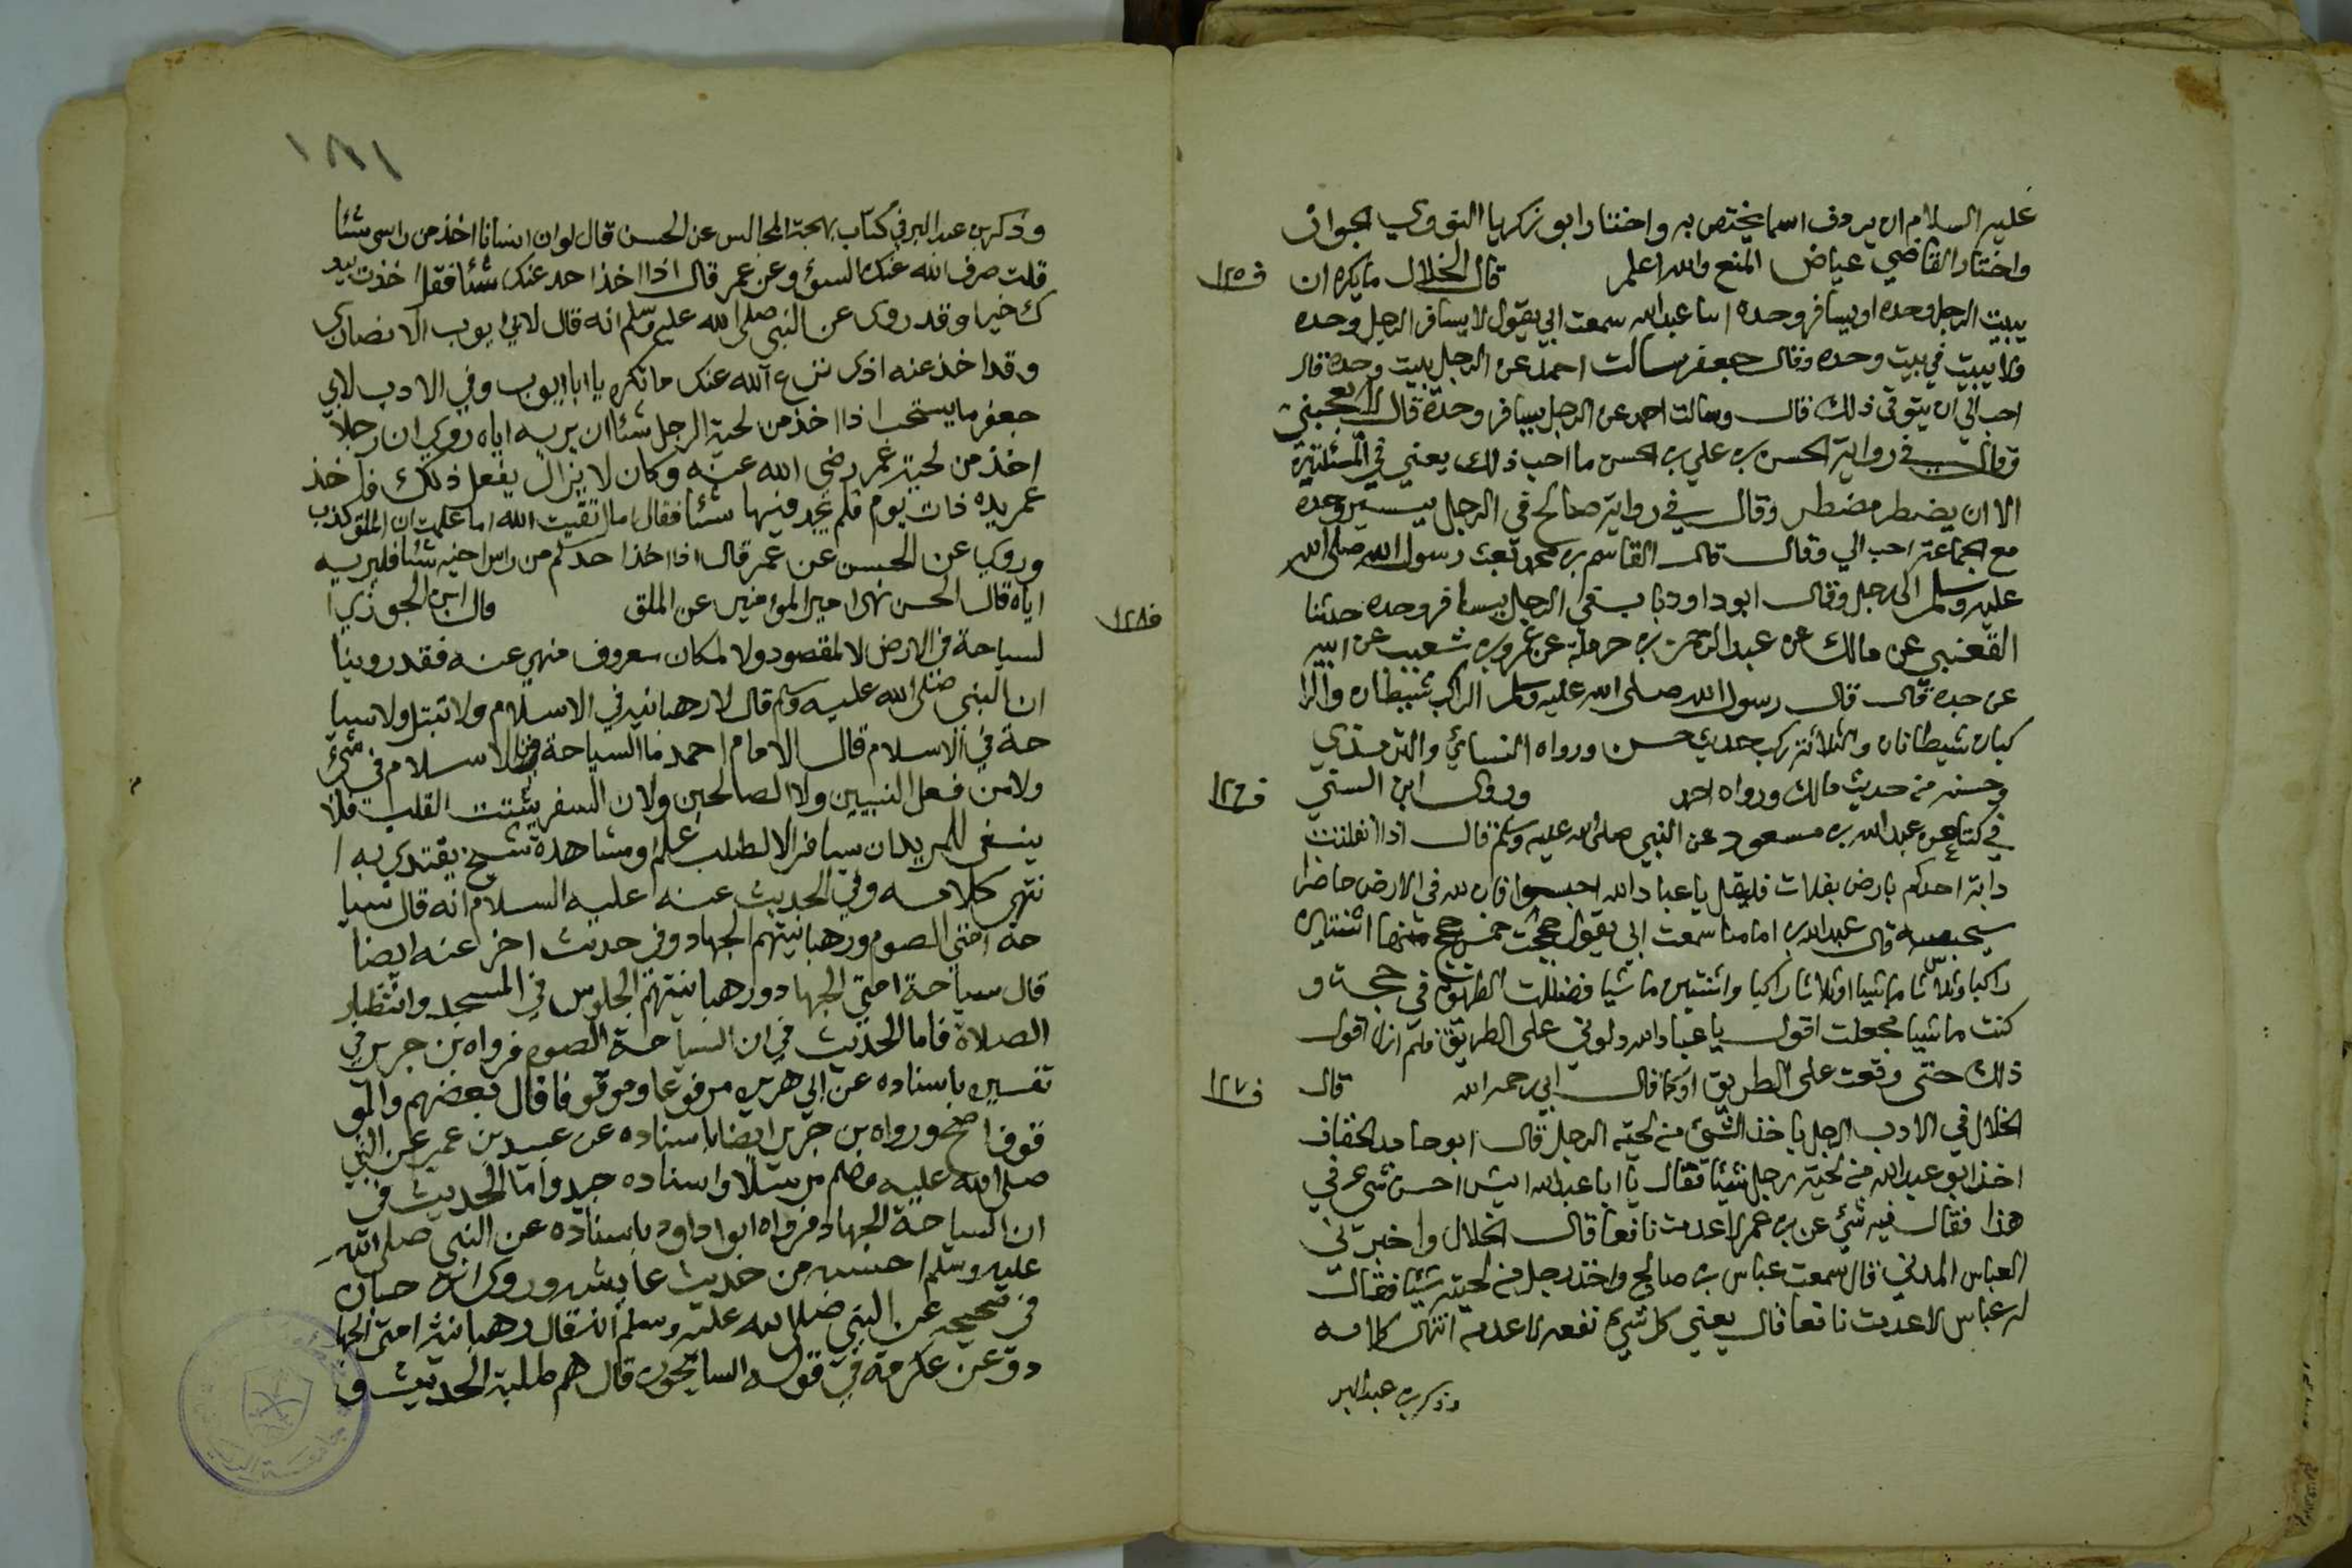 عليه السلام ان يردف اسما يختص به واختار ابو زكريا النووي الجواز
واختار القاضي عياض المنع والله اعلم قال الخلال ما يكره ان
ف١٢٥
يبيت الرجل وحده او يسافر وحده انبا عبدالله سمعت ابي يقول لا يسافر الرجل وحده
ولا يبيت في بيت وحده وقال جعفر سالت احمد عن الرجل يبيت وحده قال
احب الي ان يتوقى ذلك قال وسالت احمد عن الرجل يسافر وحده قال لا يعجبني
وقال في رواية الحسن بن علي بن الحسن ما احب ذلك يعني في المسئلتين
الا ان يضطر مضطر وقال في رواية صالح في الرجل يسير وحده
مع الجماعة احب الي وقال قال القاسم بن محمد بعث رسول الله صلى الله
عليه وسلم الى رجل وقال ابو داود باب في الرجل يسافر وحده حدثنا
القعنبي عن مالك عن عبد الرحمن بن حرملة عن عمرو بن شعيب عن ابيه
عن جده قال قال رسول الله صلى الله عليه وسلم الراكب شيطان والرا
كبان شيطانان والثلاثة ركب حديث حسن ورواه النسائي والترمذي
وحسنه من حديث مالك ورواه احمد وروى ابن السني
ف١٢٦
في كتابه عن عبدالله بن مسعود عن النبي صلى الله عليه وسلم قال اذا انفلتت
دابة احدكم بارض بفلات فليقل يا عباد الله احبسوا فان لله في الارض حاضرا
سيحبسه قال عبدالله بن امامنا سمعت ابي يقول حججت خمس حجج منها اثنتين
راكبا وثلاثا ماشيا او ثلاثا راكبا واثنتين ماشيا فضللت الطريق في حجة و
كنت ماشيا فجعلت اقول يا عباد الله دلوني على الطريق فلم ازل اقول
ذلك حتى وقعت على الطريق او كما قال ابي رحمه الله قال
ف١٢٧
الخلال في الادب الرجل ياخذ الشئ من لحية الرجل قال ابو حامد الخفاف
اخذ ابو عبدالله من لحية رجل شيئا فقال يا ابا عبدالله ايش احسن شي عرف في
هذا فقال فيه شئ عن بن عمر لا عدمت نافعا قال الخلال واخبرني
العباس المدني قال سمعت عباس بن صالح واخذ رجل من لحيته شيئا فقال
له عباس لا عدمت نافعا قال يعني كل شيء نفعه لا عدمه انتهى كلامه
وذكر بن عبد البر
١٨١
وذكر بن عبد البر في كتاب بهجة المجالس عن الحسن قال لو ان انسانا اخذ من راسي شئا
قلت صرف الله عنك السوؤ وعن عمر قال اذا اخذ احد عنك شئا فقل اخذت يد
ك خيرا وقد روى عن النبي صلى الله عليه وسلم انه قال لابي ايوب الانصاري
وقد اخذ عنه اذى نزع الله عنك ما تكره يا ابا ايوب وفي الادب لابي
جعفر ما يستحب اذا اخذ من لحية الرجل شئا ان يريه اياه روي ان رجلا
اخذ من لحية عمر رضي الله عنه وكان لا يزال يفعل ذلك فاخذ
عمر يده ذات يوم فلم يجد فيها شئا فقال اما اتقيت الله اما علمت ان الملق كذب
وروي عن الحسن عن عمر قال اذا اخذ احدكم من راس اخيه شئا فليريه
اياه قال الحسن نهى امير المؤمنين عن الملق قال ابن الجوزي ا
ف١٢٨
لسياحة في الارض لا لمقصود ولا لمكان معروف منهي عنه فقد روينا
ان النبي صلى الله عليه وسلم قال لا رهبانية في الاسلام ولا تبتل ولا سيا
حة في الاسلام قال الامام احمد ما السياحة من الاسلام في شئ
ولا من فعل النبيين ولا الصالحين ولان السفر يشتت القلب فلا
ينبغي للمريد ان يسافر الا لطلب علم او مشاهدة شيخ يقتدي به ا
نتهى كلامه وفي الحديث عنه عليه السلام انه قال سيا
حة امتي الصوم ورهبانيتهم الجهاد وفي حديث اخر عنه ايضا
قال سياحة امتي الجهاد ورهبانيتهم الجلوس في المسجد وانتظار
الصلاة فاما الحديث في ان السياحة الصوم فرواه بن جرير في
تفسيره باسناده عن ابي هريره مرفوعا وموقوفا قال بعضهم والمو
قوف اصح ورواه بن جرير ايضا باسناده عن عبيد بن عمير عن النبي
صلى الله عليه وسلم مرسلا واسناده جيد واما الحديث في
ان السياحة الجهاد فرواه ابو داود باسناده عن النبي صلى الله
عليه وسلم احسبه من حديث عايشه وروى ابن حبان
في صحيحه عن النبي صلى الله عليه وسلم انه قال رهبانية امتي الجها
د وعن عكرمة في قوله السايحون قال هم طلبة الحديث و